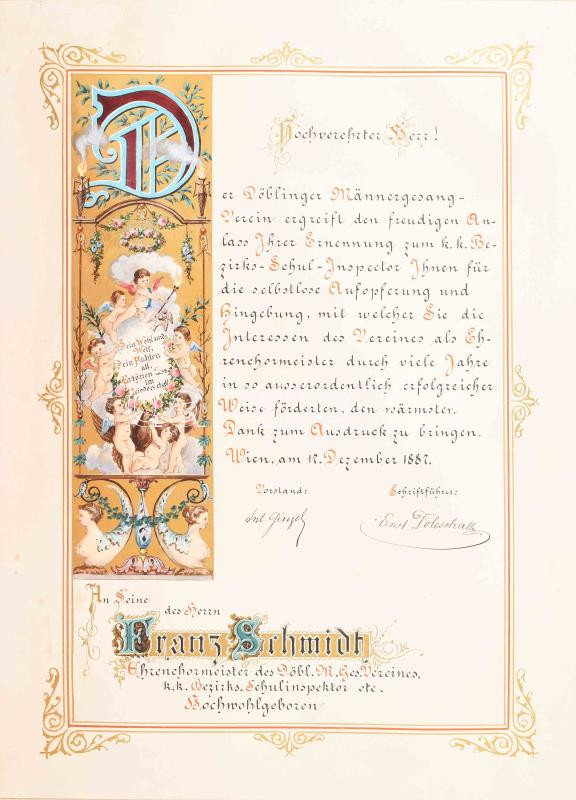 Hochverehrter Herr!
Der Döblinger Männergesang-
Verein ergreift den freudigen An-
lass Ihrer Ernennung zum k. k. Be-
zirks-Schul-Inspector Ihnen für
die selbstlose Aufopferung und
Hingebung, mit welcher Sie die
Interessen des Vereines als Eh-
renchormeister durch viele Jahre
in so ausserordentlich erfolgreicher
Weise förderten, den wärmsten
Dank zum Ausdruck zu bringen.
Wien, am 17. Dezember 1887.
Sein Wohl und
Weh,
Sein Fühlen
all,
im
Vorstand:
Schriftführer:
Ginzel
Ernst
An Seine
des Herrn
Franz Schmidt
Ehrenchormeister des Döbl. M. Ges. Vereines,
k. k. Bezirks. Schulinspektor etc.
Hochwohlgeboren